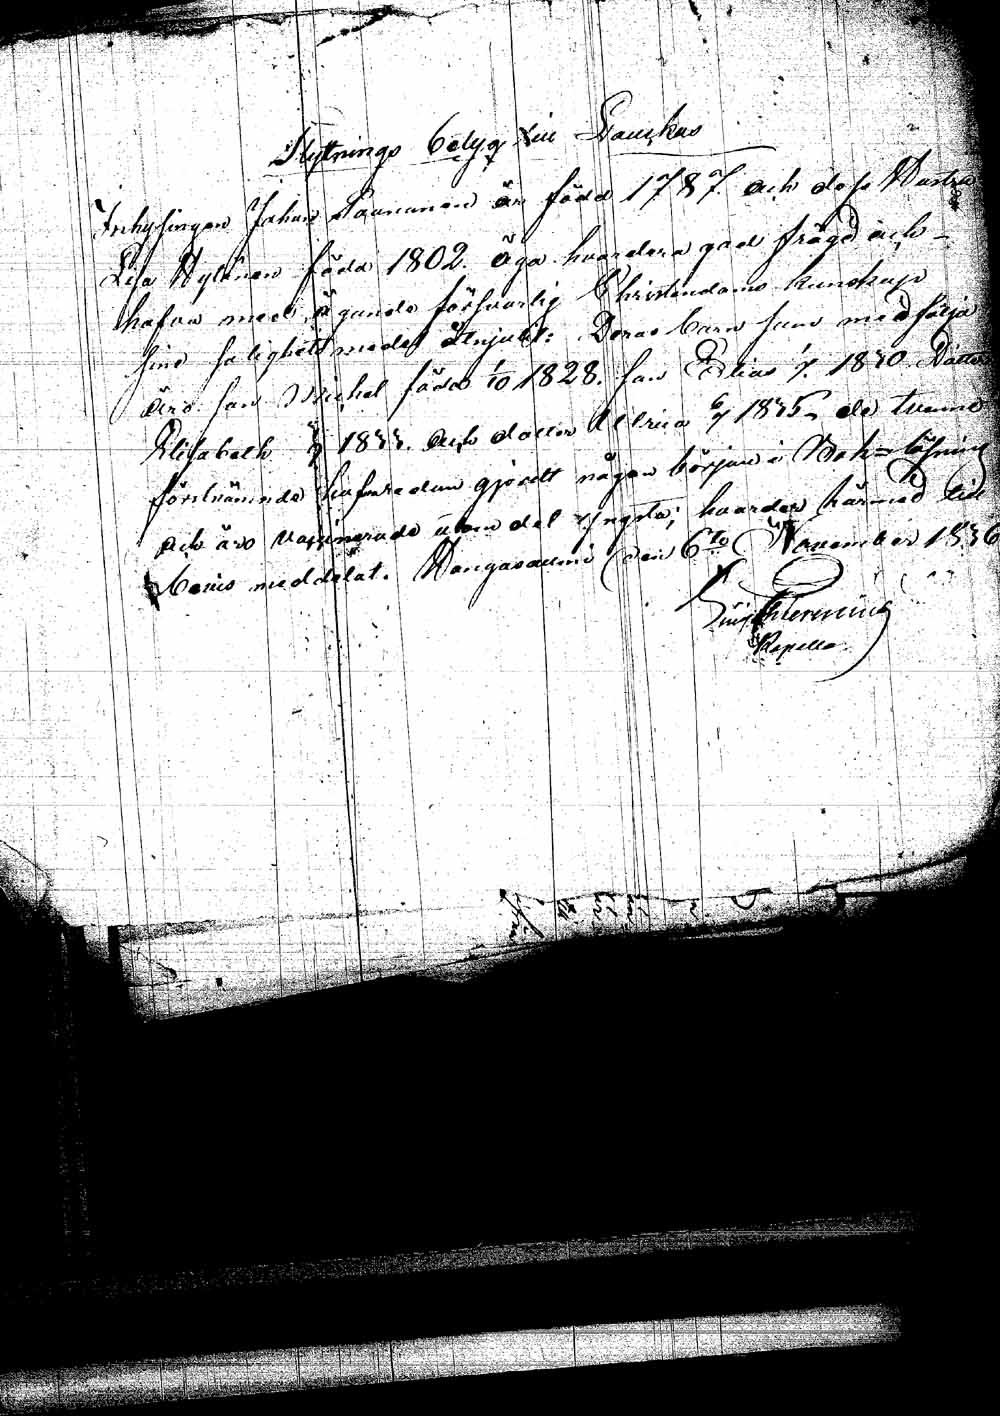 Flytnings betyg till Lauckas
Inhysingen Johan Paananen är född 1787. och dess Hustru
Lisa Hytönen född 1802. äga hvardera god frägd och
hafva med ägande försvarlig Christendoms kunskap
sine salighets medel åtnjutit: Deras barn som medfölja
äro. son Michel född 1/10 1828. son Elias 1830. Dotter
Elisabeth 1833. och dotter Ulrica 1835, de tvenne
förstnämnda hafva redan gjordt någon början i Bok=läsning
och äro vaccinerade utom det yngsta; hvarder härmed till
bevis meddelat. Wangasaumi den 6te November 1836
Kapella